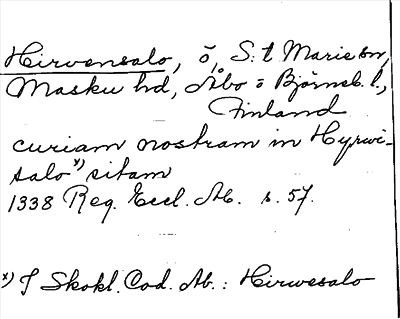 Hirvensalo, ö, S:t Marie sn,
Masku hd, Åbo o Björneb. l.,
Finland
curiam nostram in Hyrwi-
salo x) sitam
1338 Reg. Eccl. Ab. s. 57.
x) I Skokl. Cod. Ab.: Hirwesalo